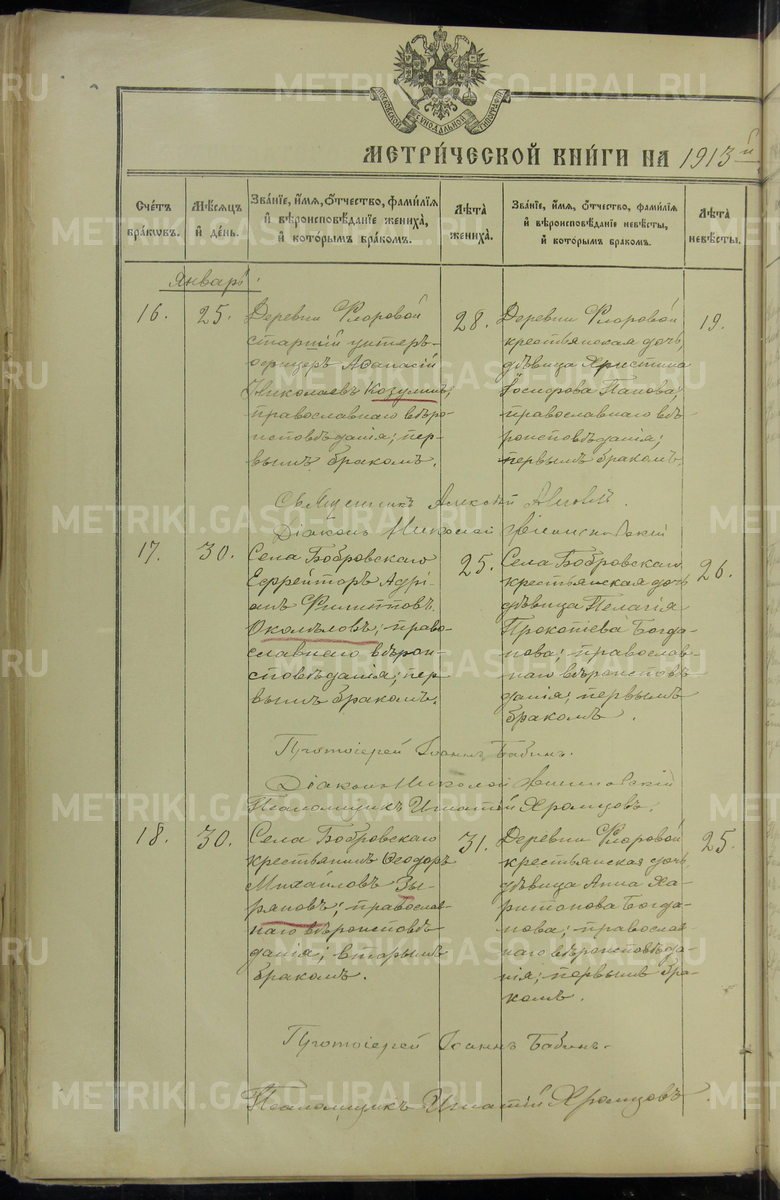 МЕТРИЧЕСКОЙ КНИГИ НА 1913й
Счетъ браковъ.
Мѣсяцъ и день.
Званіе, имя, отчество, фамилія и вѣроисповѣданіе жениха, и которымъ бракомъ.
Лѣта жениха.
Званіе, имя, отчество, фамилія и вѣроисповѣданіе невѣсты, и которымъ бракомъ.
Лѣта невѣсты.
Январь.
16.
25.
Деревни Фларовой
старшій унтеръ-
офицеръ Аѳанасій
Николаевъ Козулинъ,
православнаго вѣро
исповѣданія; пер-
вымъ бракомъ.
28.
Деревни Фларовой
крестьянская дочь,
дѣвица Христина
Іосифова Панова,
православнаго вѣ
роисповѣданія;
первымъ бракомъ.
19.
Священникъ Алексѣй
Діаконъ Николай
17.
30.
Села Бобровскаго
Ефрейторъ Адрі-
анъ Филипповъ
Окомѣловъ; право
славнаго вѣрои-
сповѣданія; пер
вымъ бракомъ.
25.
Села Бобровскаго
крестьянская дочь
дѣвица Пелагія
Прокопіева Богда-
нова; православ-
наго вѣроисповѣ
данія; первымъ
бракомъ.
26.
Протоіерей Іоаннъ Бабинъ.
Діаконъ Николай
Псаломщикъ Игнатій Хромцовъ.
18.
30.
Села Бобровскаго
крестьянинъ Ѳеодоръ
Михайловъ Зы-
ряновъ; православ-
наго вѣроисповѣ
данія; вторымъ
бракомъ.
31.
Деревни Фларовой
крестьянская дочь,
дѣвица Анна Ха-
ритонова Богда-
нова; православ-
наго вѣроисповѣда-
нія; первымъ бра-
комъ.
25.
Протоіерей Іоаннъ Бабинъ.
Псаломщикъ Игнатій Хромцовъ.
METRIKI.GASO-URAL.RU